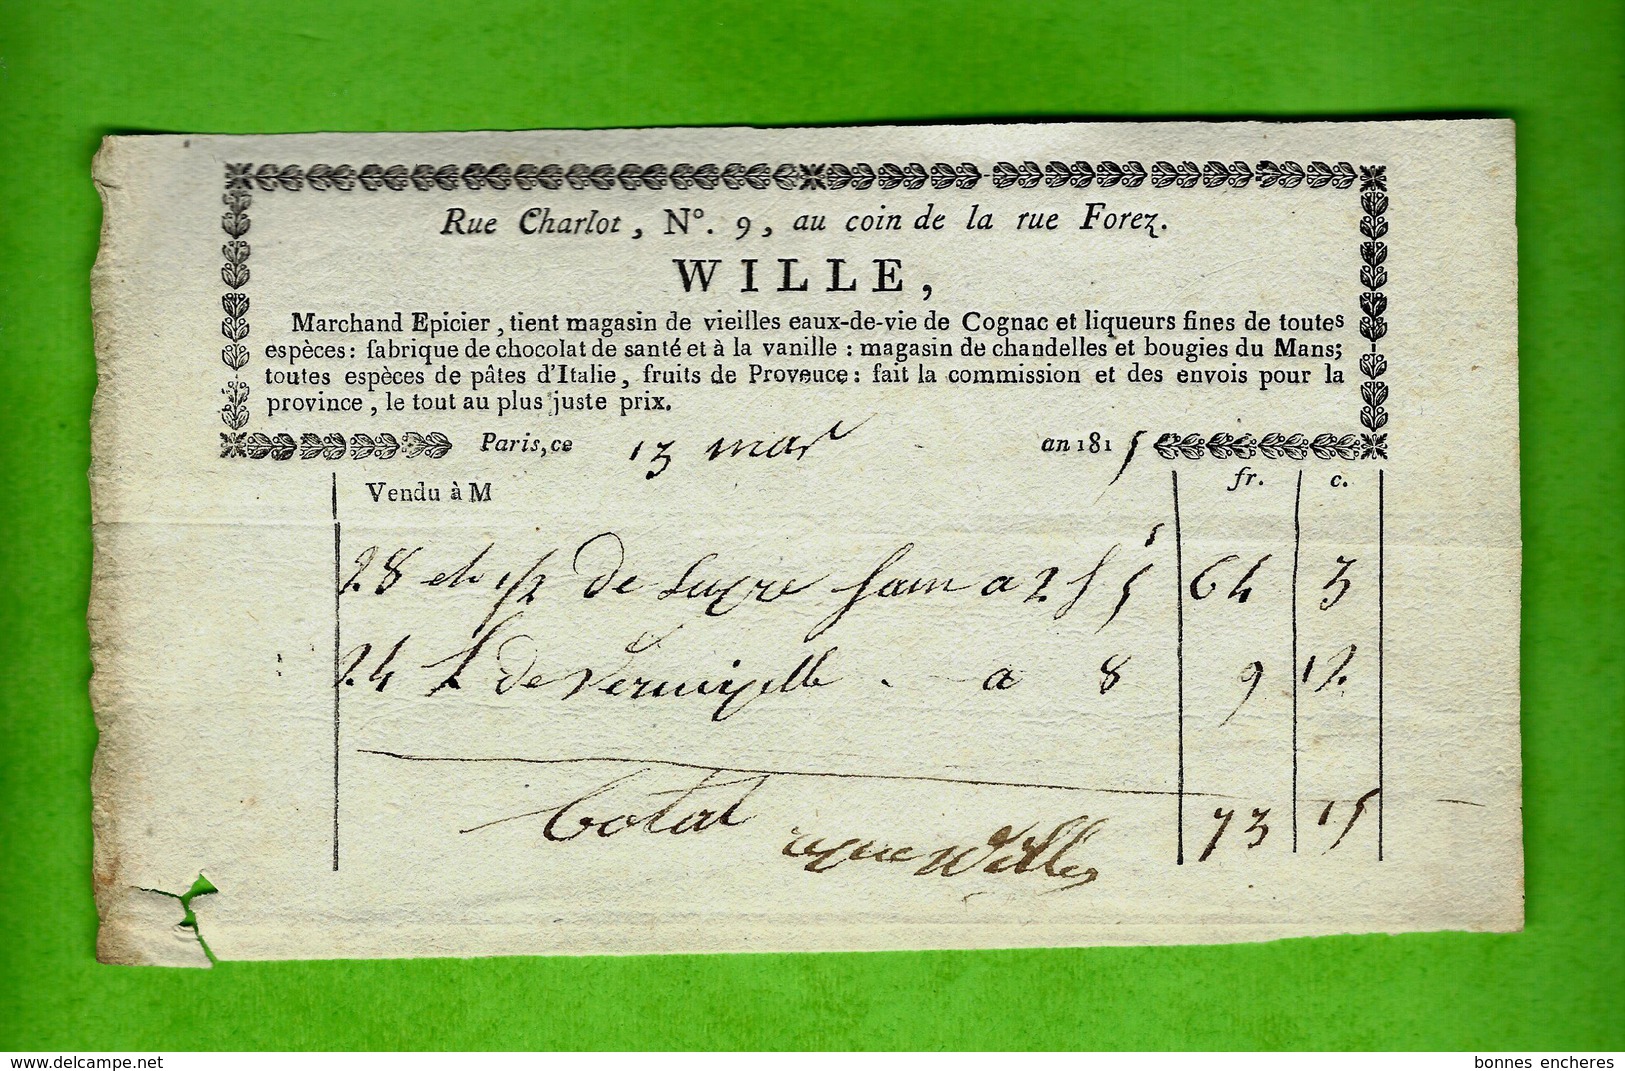 Rue Charlot, N°. 9, au coin de la rue Forez.
WILLE,
Marchand Epicier, tient magasin de vieilles eaux-de-vie de Cognac et liqueurs fines de toutes
espèces: fabrique de chocolat de santé et à la vanille : magasin de chandelles et bougies du Mans;
toutes espèces de pâtes d'Italie, fruits de Provence: fait la commission et des envois pour la
province, le tout au plus juste prix.
Paris, ce 13 mar an 1815
Vendu à M fr. c.
28 et 1/2 de sucre a 2 f 5 s 64 3
24 l de Vermixelle . a 8 9 12
total 73 15
Wille
delcampe.net
bonnes encheres